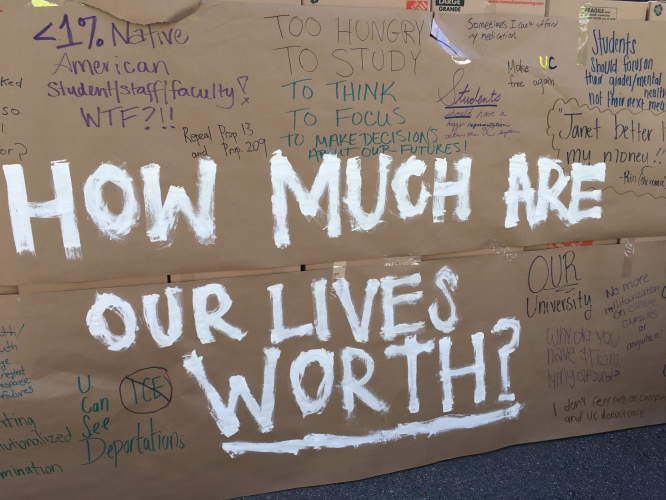 LARGE
GRANDE
<1% Native
American
Student/staff/faculty!
WTF?!!
TOO HUNGRY
TO STUDY
TO THINK
TO FOCUS
TO MAKE DECISIONS
ABOUT OUR FUTURES!
Repeal Prop 13
and Prop. 209
Sometimes I can't afford
my medication.
Make UC
free again
Students
should have a
bigger representation
UC system
FRAGILE
Students
should focus on
their grades/mental
health
not their next meal
"Janet better
my money!!
HOW MUCH ARE
OUR LIVES
WORTH?
U
Can
See
Deportations
ICE
OUR
University
No more
militarization
on college
campuses
or
anywhere
Why do you
have $175m
lying around?
I don't feel safe on campus
and UC doesn't care